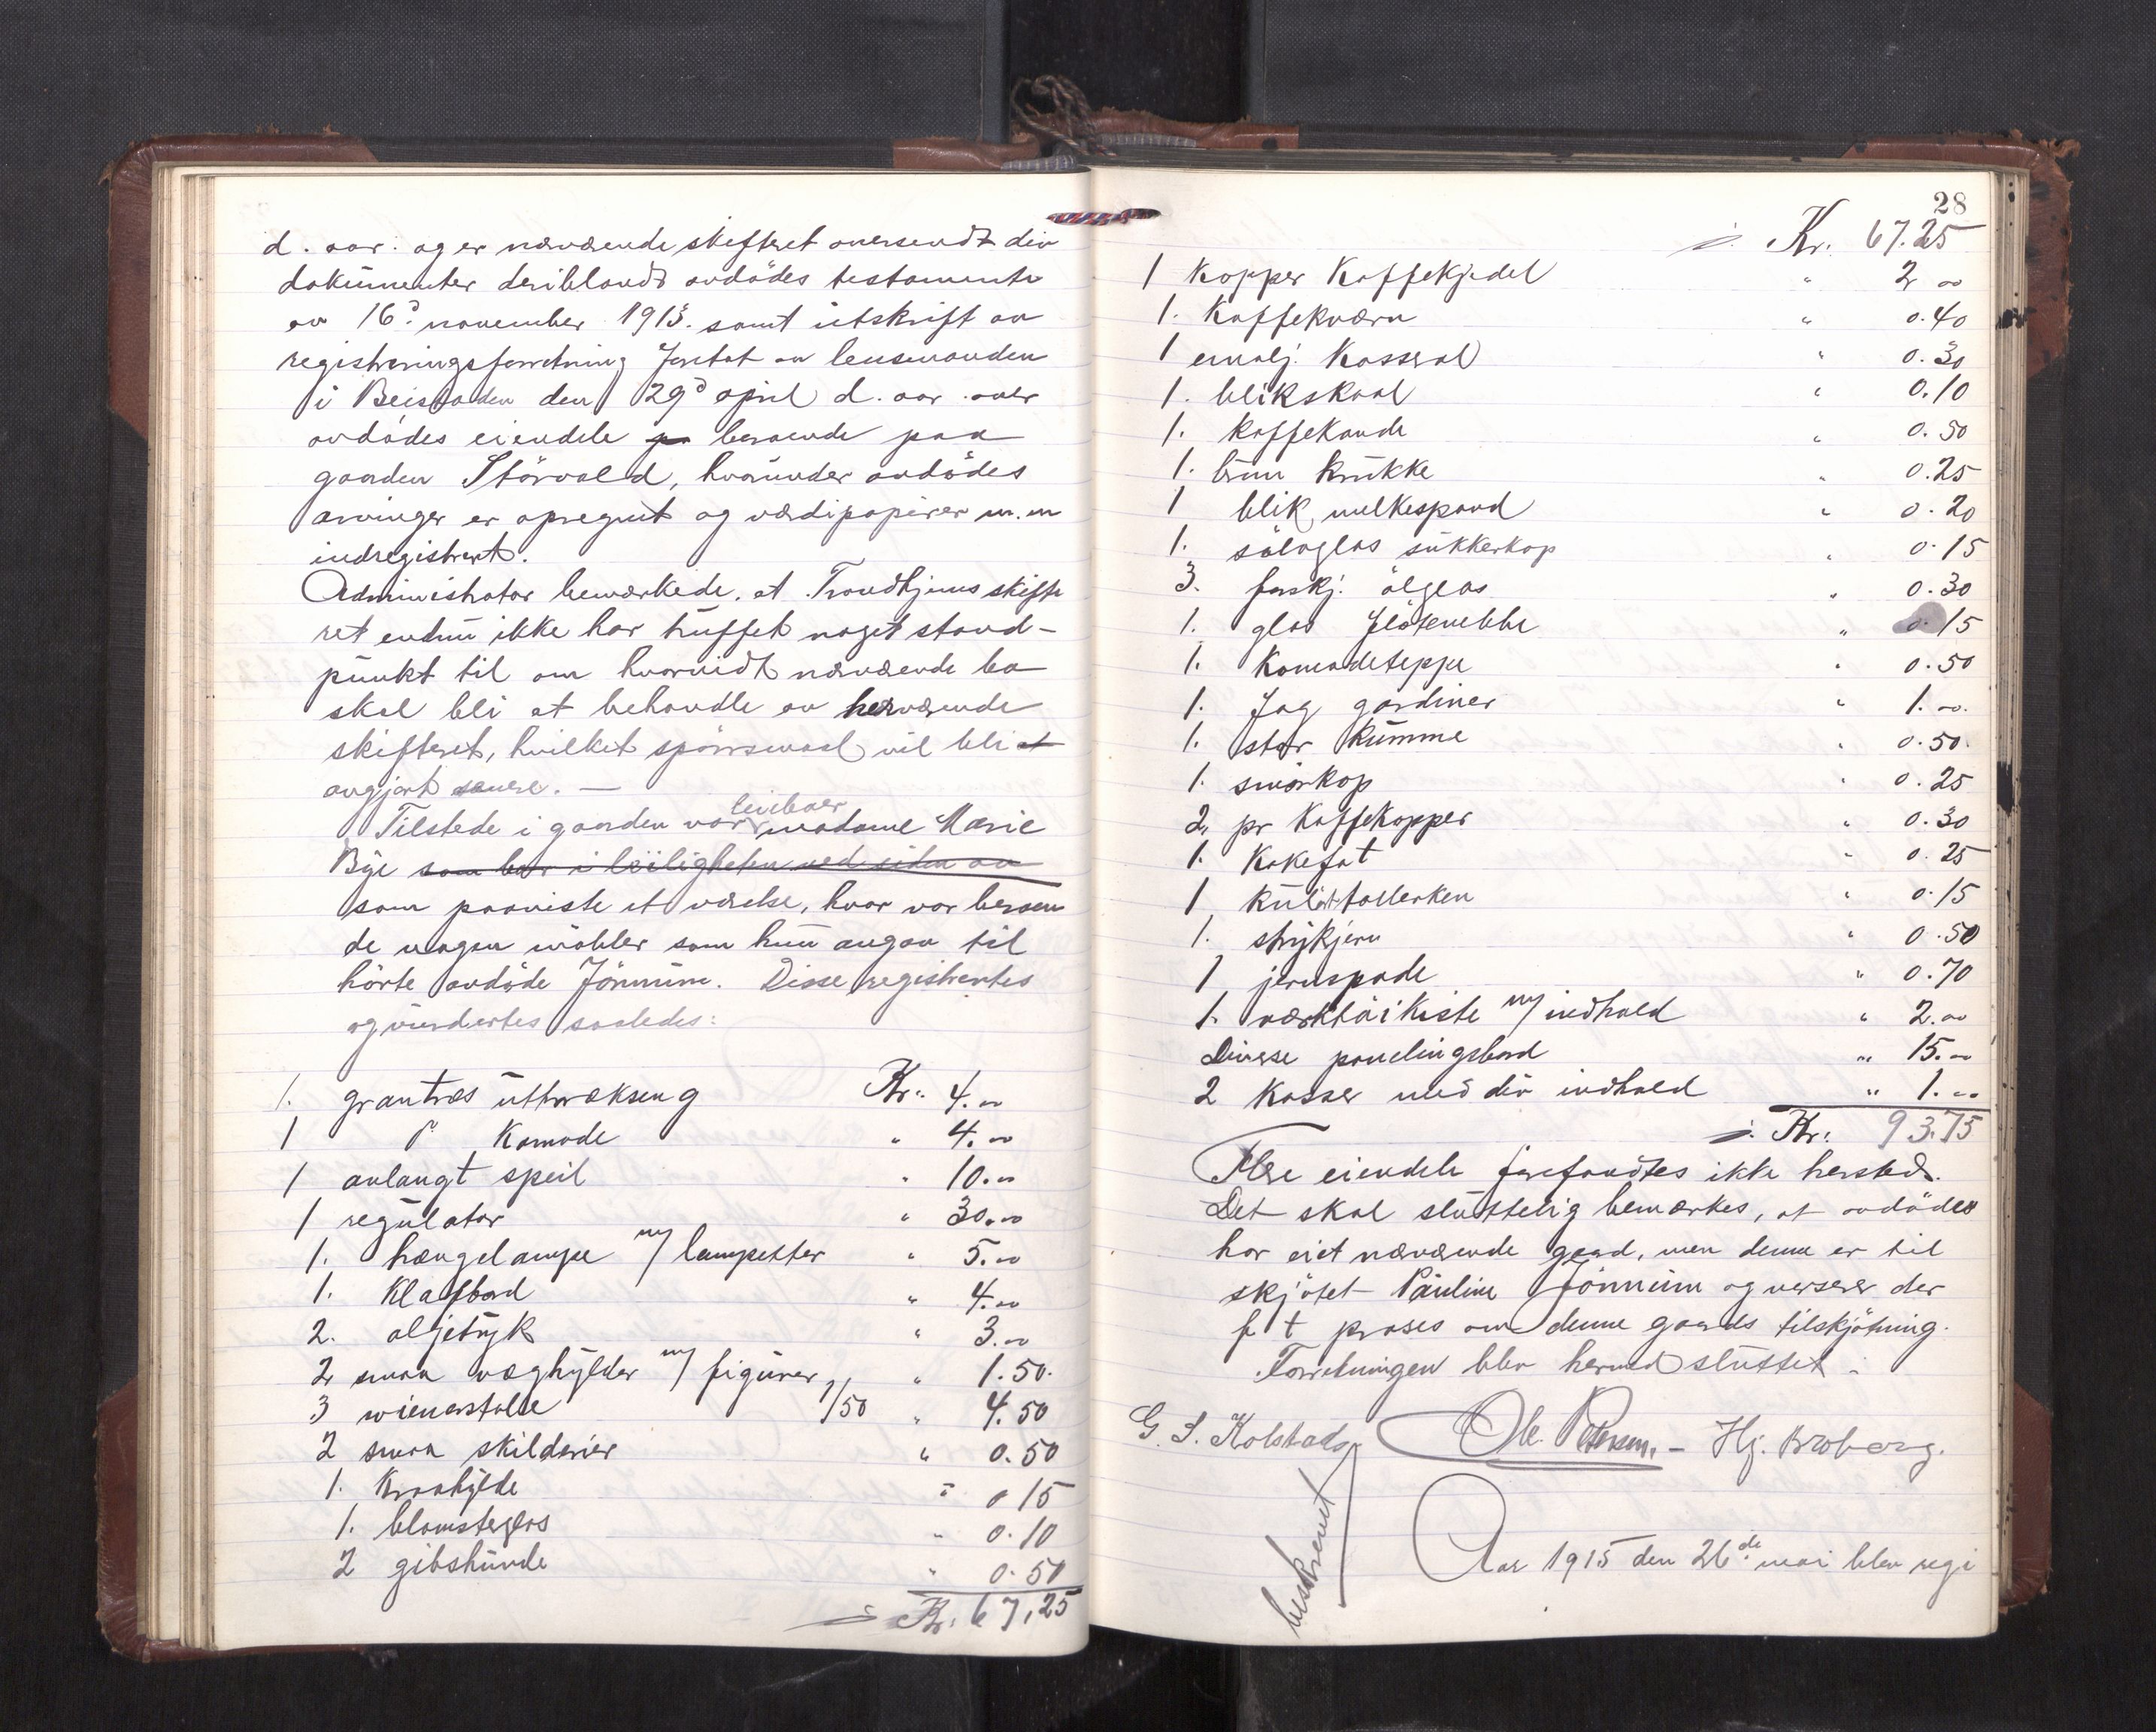 d. aar. og er nærværende skifteret oversendt div
dokumenter deriblandt avdødes testamente
av 16d. november 1913. samt utskrift av
registreringsforretning foretat av lensmanden
i Beistaden den 29d april d. aar over
avdødes eiendele pa beroende paa
gaarden Störvold, hvorunder avdødes
arvinger er opregnet og værdipapirer m.m
indregistrert.
Administrator bemærkede, at Trondhjems skifte
ret endnu ikke har truffet noget stand-
punkt til om hvorvidt nærværende bo
skal bli at behandle av herværende
skifteret, hvilket spörsmaal vil bli at
avgjort senere. —
leieboer
Tilstede i gaarden var madame Marie
Bye som bor i leiligheten ved siden av
som paaviste et værelse, hvor var beroen
de nogen möbler som hun angav til
hörte avdöde Jönnum. Disse registrertes
og vurdertes saaledes:
1. grantræs uttrækseng Kr. 4.00
1 d° Komode " 4.00
1 avlangt speil " 10.00
1 regulator " 30.00
1. hængelampe m/ lampetter " 5.00
1. Klafbord " 4.00
2. oljetryk " 3.00
2 smaa væghylder m/ figurer " 1.50.
3 wienerstole 1/50 " 4.50
2 smaa skilderier " 0.50
1. Kraahylde " 0 15
1. blomsterglas " 0.10
2 gibshunde " 0.50
Kr. 67,25
28
Kr. 67.25
1 Kopper Kaffekjedel " 2 00
1. Kaffekværn " 0.40
1 emalj. Kasserol " 0.30
1. blikskaal " 0.10
1. Kaffekande " 0.50
1. brun Krukke " 0.25
1 blik melkespand " 0.20
1. sölvglas sukkerkop " 0.15
3. forskj. ölglas " 0.30
1. glas flötenebbe " 0.15
1. Komodeteppe " 0.50
1. Fag gardiner " 1.00.
1. stor Kumme " 0.50.
1. smörkop " 0.25
2, pr Kaffekopper " 0.30
1. Kakefat " 0.25
1 tallerken " 0.15
1. strykjern " 0.50
1 jernspade " 0.70
1. værktöikiste m/ indhold " 2.00
Diverse panelingsbord " 15.00
2 Kasser med div indhold " 1.00
Kr. 93.75
Flere eiendele forefandtes ikke hersteds.
Det skal sluttelig bemærkes, at avdödes
har eiet nærværende gaard, men denne er til
skjötet Pauline Jönnum og verserer der
f t proses om denne gaards tilskjötning.
Forretningen blev hermed sluttet.
G. S. Kolstad Ole Petersen. — Hj. Broberg.
beskrevet
Aar 1915 den 26de mai blev regi